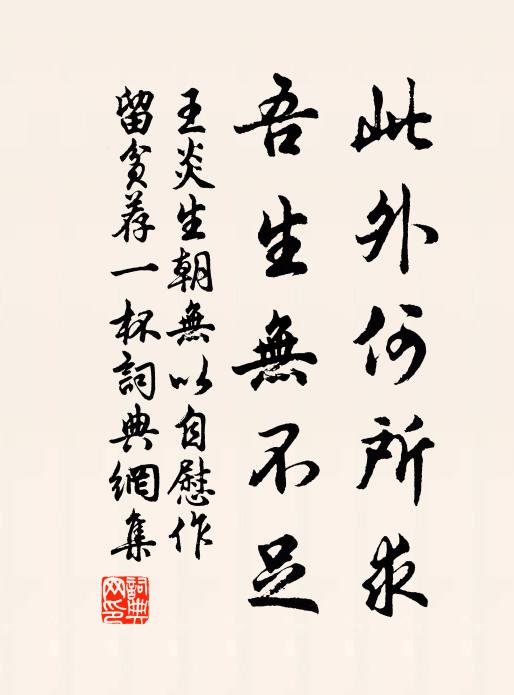 此外何所求
吾生無不足
王炎生朝無以自慰作
留貧荐一杯詞典網集
詞典
網印